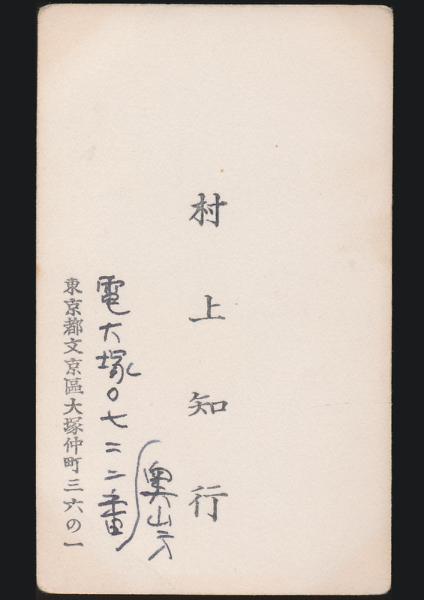 村上知行
奥山方
電大塚〇七二二番
東京都文京區大塚仲町三六の一